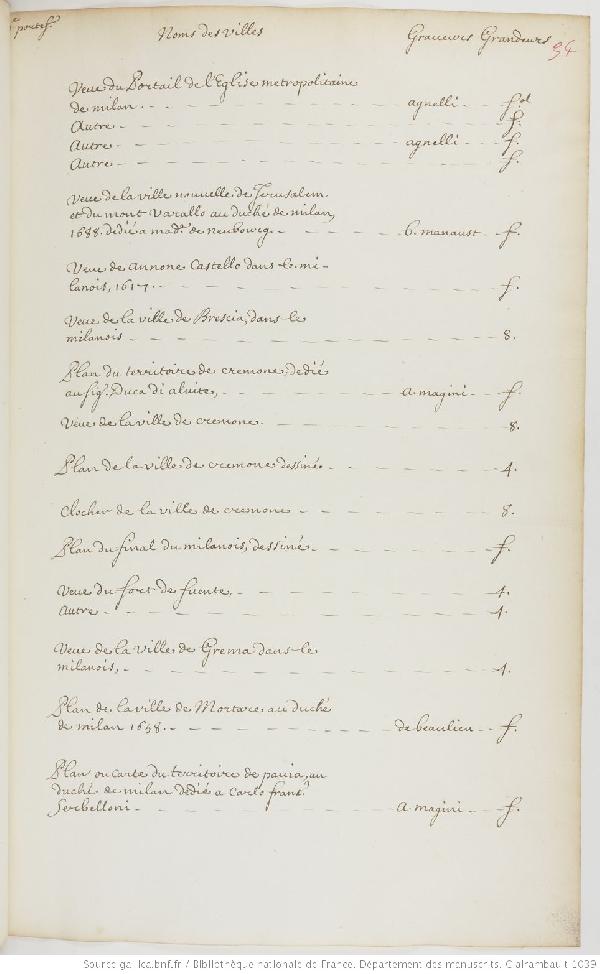 portef.
Noms des villes Graueurs Grandeurs
54
Veue du Portail de l'Eglise metropolitaine
de milan. agnelli f.ol
Autre f.
Autre agnelli f.
Autre f.
Veue de la ville nouuelle de Jerusalem
et du mont Varallo au duché de milan,
1688. dedié a mad.e de neubourg. b. manaust f.
Veue de annone Castello dans le mi-
lanois, 1617. f.
Veue de la ville de Brescia, dans le
milanois 8.
Plan du territoire de cremone, dedié
au sig.r Duca di aluite, a. magini f.
Veue de la ville de cremone. 8.
Plan de la ville de cremone dessiné. 4.
Clocher de la ville de cremone 8.
Plan du final du milanois, dessiné. f.
Veue du fort de fuente. 4.
Autre 4.
Veue de la ville de Crema dans le
milanois, 4.
Plan de la ville de Mortare au duché
de milan 1658. de beaulieu f.
Plan ou carte du territoire de pauia, au
duché de milan dedié a Carlo frans.o
Serbelloni a. magini f.
Source gallica.bnf.fr / Bibliothèque nationale de France. Département des manuscrits. Clairambault 1039